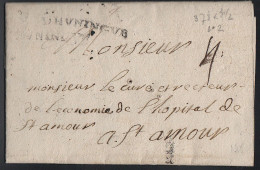 HUNINGUE
Monsieur
4
monsieur le curé et recteur
de l'economie de l'hopital de
St amour
a St amour